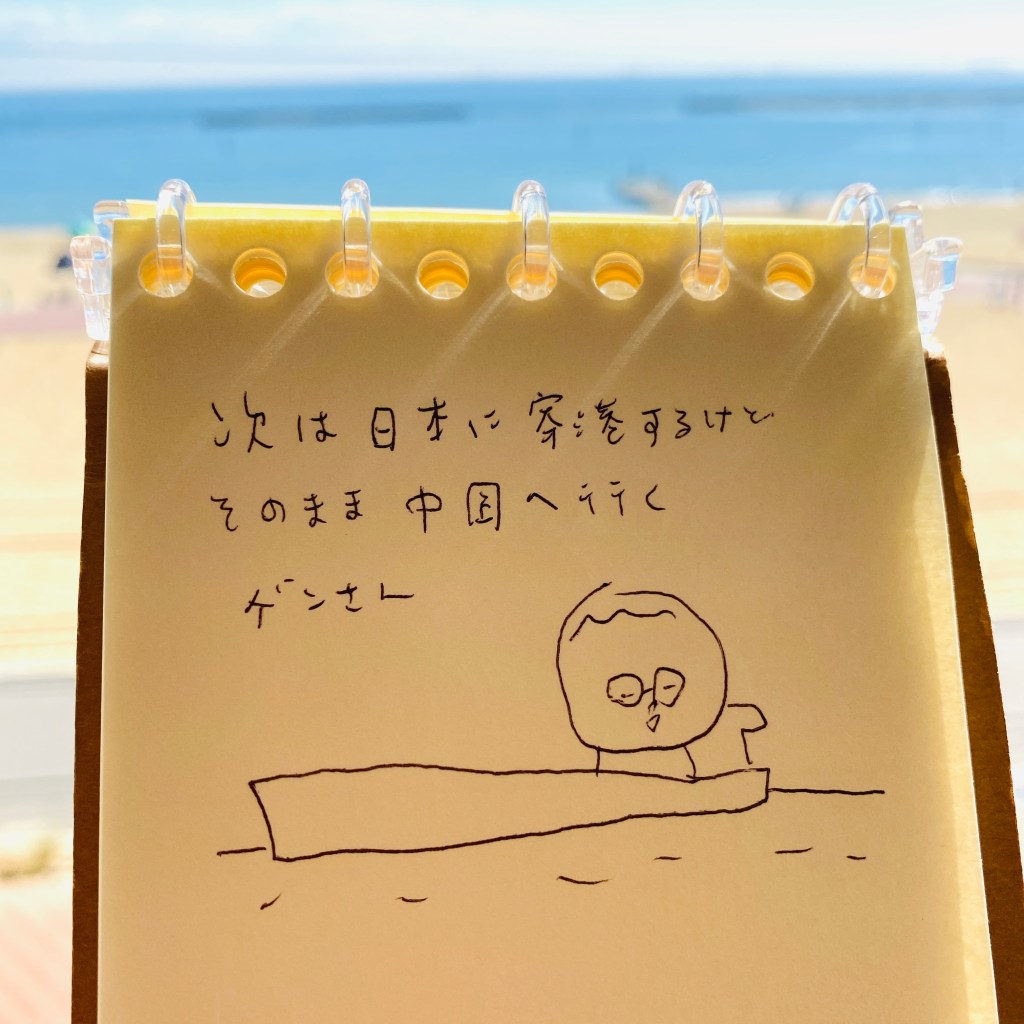 次は日本に寄港するけど
そのまま中国へ行く
ゲンさん